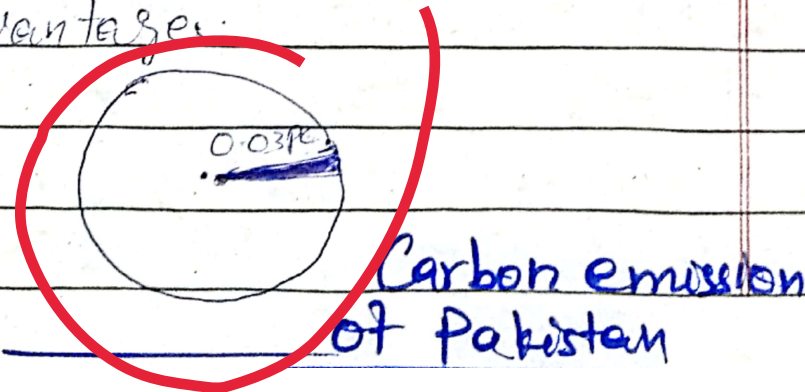 vantage.
0.03pc
Carbon emission
of Pakistan